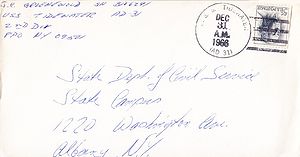 USS TIDEWATER AD 31
2ND DIV
FPO NY 09501
DEC
31
A.M.
1966
(AD 31)
State Dept. of Civil Service
State Campus
1220 Washington Ave.
Albany N.Y.